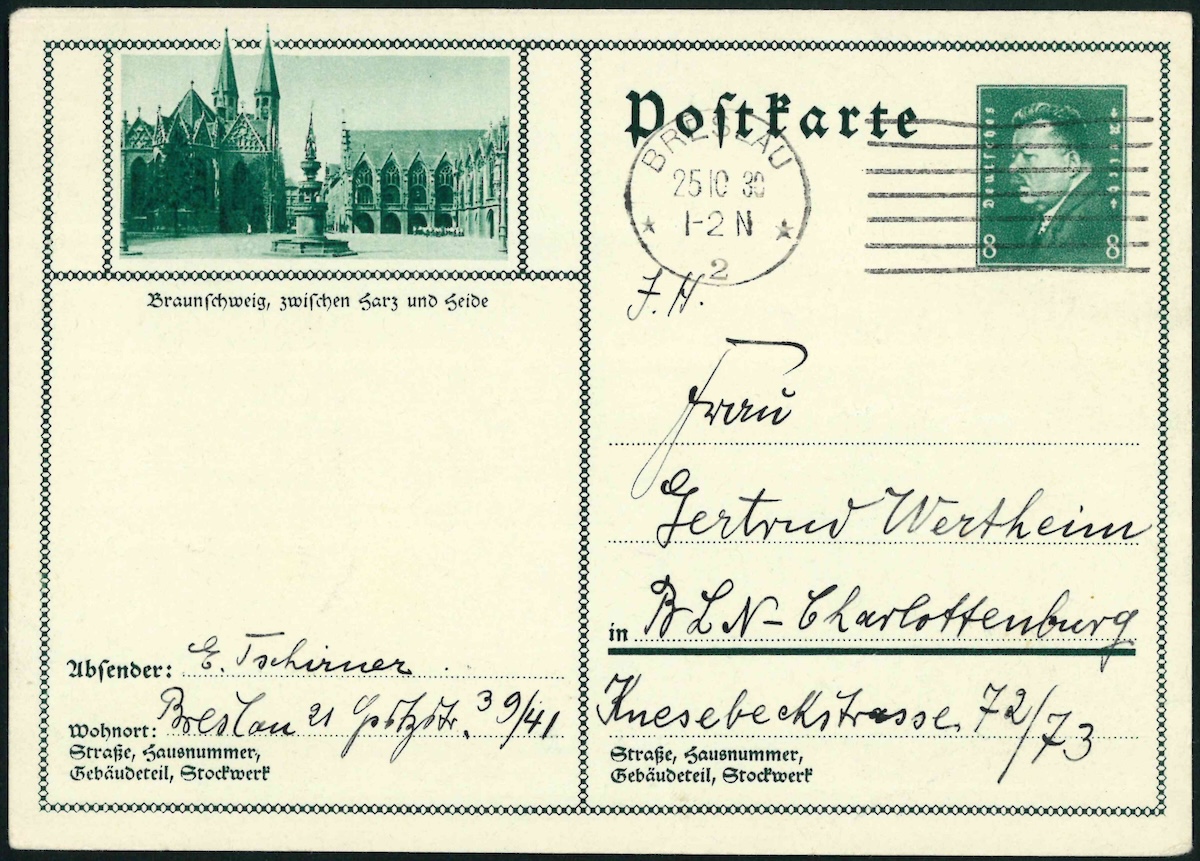 Braunschweig, zwischen Harz und Heide
Absender: E. Tschirner
Wohnort: Breslau 21 39/41
Straße, Hausnummer,
Gebäudeteil, Stockwerk
Postkarte
Deutsches Reich
8 8
BRESLAU
25 10 30
1-2 N
2
Frau
Gertrud Wertheim
in BLN-Charlottenburg
Knesebeckstrasse 72/73
Straße, Hausnummer,
Gebäudeteil, Stockwerk